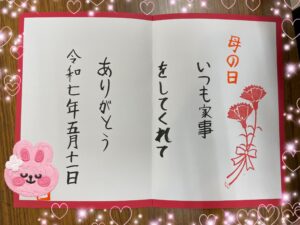 母の日
いつも家事
をしてくれて
ありがとう
令和七年五月十一日